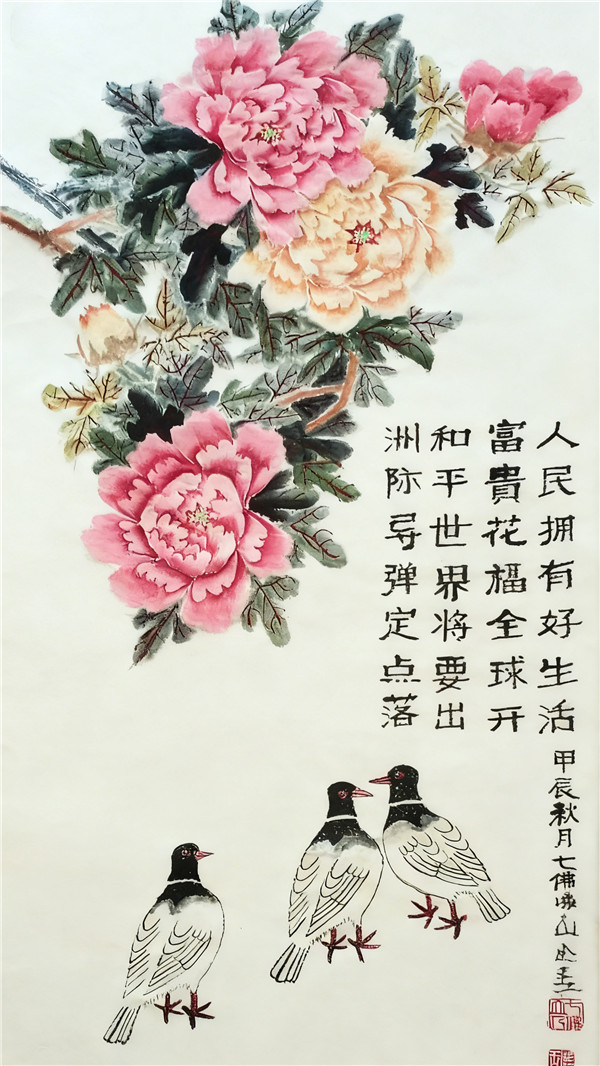 人民拥有好生活
富貴花福全球开
和平世界将要出
洲际导弹定点落
甲辰秋月七佛